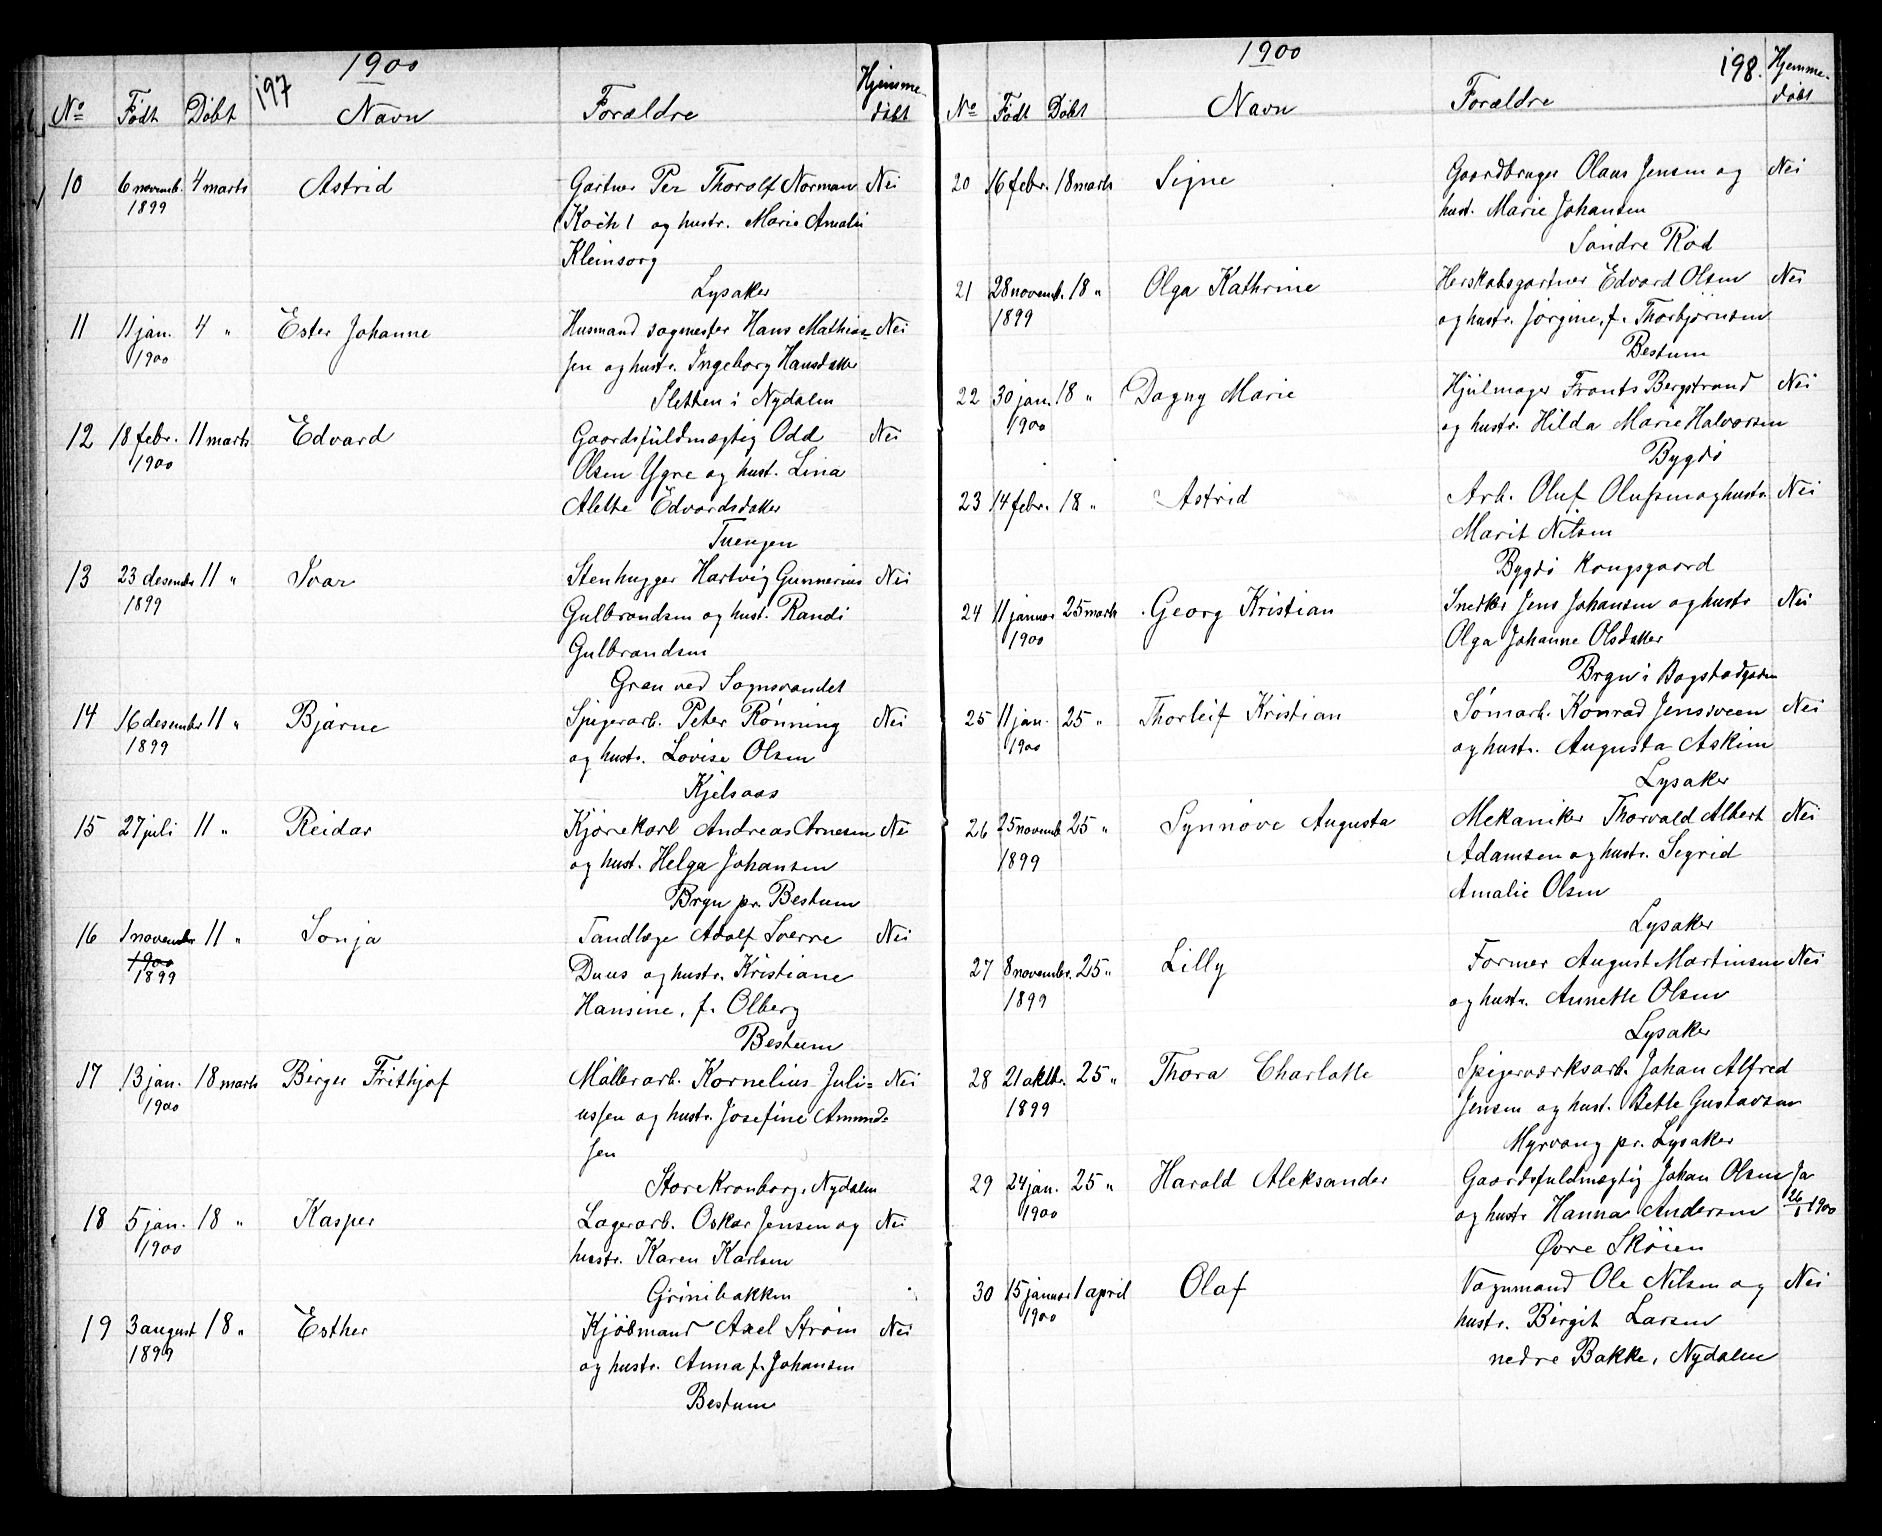 1900
197
No Født Døbt Navn Forældre Hjemme-
døbt
10 6 novemb. 4 marts Astrid Gartner Per Thorolf Norman Nei
1899 (Koch) og hustr. Marie Amalie
Kleinsorg
Lysaker
11 11 jan. 4 " Ester Johanne Husmand sagmester Hans Mathias= Nei
1900 sen og hustr. Ingeborg Hansdatter
Sletten i Nydalen
12 18 febr. 11 marts Edvard Gaardsfuldmægtig Odd Nei
1900 Olsen Ygre og hust. Lina
Alette Edvardsdatter
Tuengen
13 23 desembr 11 " Ivar Stenhugger Hartvig Gunnerius Nei
1899 Gulbrandsen og hust. Randi
Gulbrandsen
Gran ved Sognsvandet
14 16 desember 11 " Bjarne Spigerarb. Peter Rønning Nei
1899 og hustr. Lovise Olsen
Kjelsaas
15 27 juli 11 " Reidar Kjørekarl Andreas Arnesen Nei
og hust. Helga Johansen
Bryn pr. Bestum
16 1 november 11 " Sonja Tandlæge Adolf Sverre Nei
1900 Duus og hustr. Kristiane
1899 Hansine, f. Olberg
Bestum
17 13 jan. 18 marts Birger Frithjof Møllerarb. Kornelius Juli= Nei
1900 ussen og hustr. Josefine Amund=
sen
Store Kronborg, Nydalen
18 5 jan. 18 " Kasper Lagerarb. Oskar Jensen og Nei
1900 hustr. Karen Karlsen
Grinibakken
19 3 august 18 " Esther Kjøbmand Axel Strøm Nei
1899 og hustr. Anna f. Johansen
Bestum
1900
198.
No Født Døbt Navn Forældre Hjemme-
døbt
20 16 febr. 18 marts Signe Gaardbruger Olaus Jensen og Nei
hust. Marie Johansen
Søndre Rød
21 28 novemb. 18 " Olga Kathrine Herskabsgartner Edvard Olsen Nei
1899 og hustr. Jørgine, f. Thorbjørnsen
Bestum
22 30 jan. 18 " Dagny Marie Hjulmager Frants Bergstrand Nei
1900 og hustr. Hilda Marie Halvorsen
Bygdø
23 14 febr. 18 " Astrid Arb. Oluf Olufsen og hustr. Nei
Marit Nilsen
Bygdø Kongsgaard
24 11 januar 25 marts Georg Kristian Snedker Jens Johansen og hustr Nei
1900 Olga Johanne Olsdatter
Bryn i Bogstadgaden
25 11 jan. 25 " Thorleif Kristian Sømarb. Konrad Jensveen Nei
1900 og hustr. Augusta Askim
Lysaker
26 25 novemb. 25 " Synnøve Augusta Mekaniker Thorvald Albert Nei
1899 Adamsen og hustr. Sigrid
Amalie Olsen
Lysaker
27 8 novembr. 25 " Lilly Former August Martinsen Nei
1899 og hustr. Annette Olsen
Lysaker
28 21 oktbr. 25 " Thora Charlotte Spigerværksarb. Johan Alfred
1899 Jensen og hust. Bette Gustavsen
Myrvang pr. Lysaker
29 24 jan. 25 " Harald Aleksander Gaardsfuldmægtig Johan Olsen Ja
1900 og hustr Hanna Andersen 26/1 1900
Øvre Skøien
30 15 januar 1 april Olaf Vognmand Ole Nilsen og Nei
1900 hustr. Birgit Larsen
nedre Bakke, Nydalen